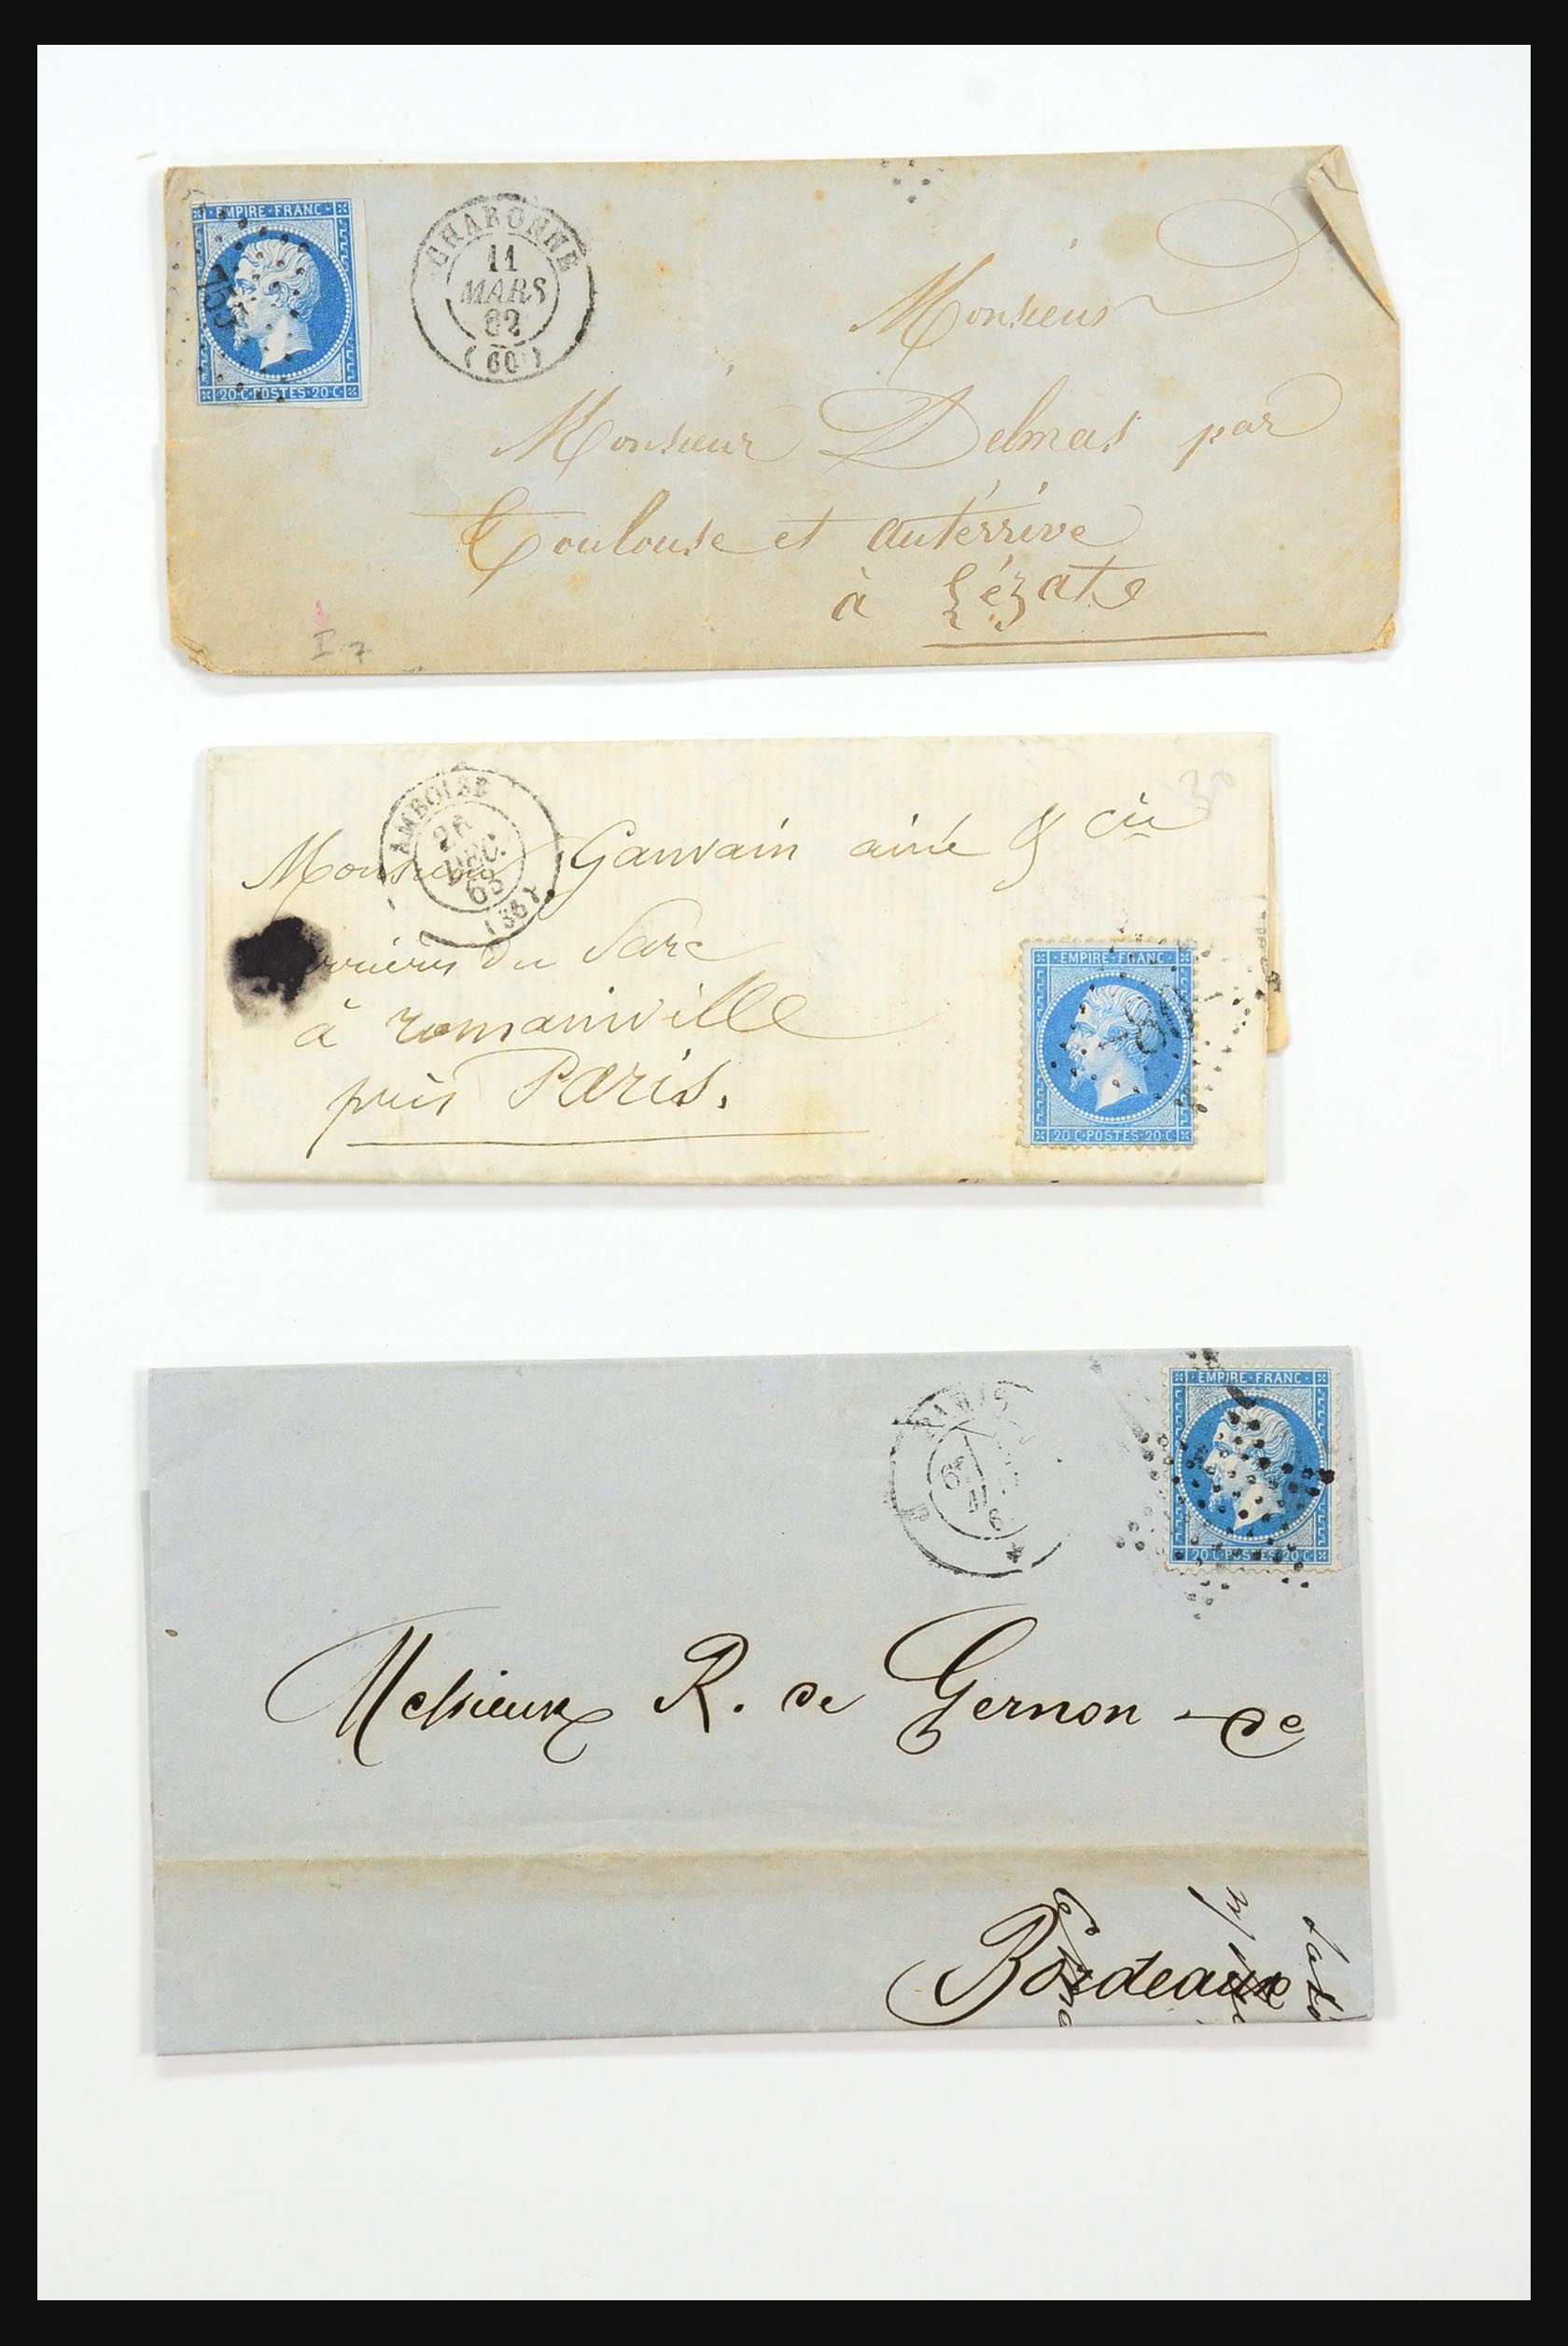 EMPIRE·FRANC·
755
20·C·POSTES·20·C·
CHABONNE
11
MARS
62
(60)
Monsieur
Monsieur Delmas par
Toulouse et autérrive
à Lézat
I 7
AMBOISE
26
DEC.
63
(36)
Monsieur Gauvain ainé & Cie
du Parc
à romainville
près Paris.
EMPIRE·FRANC·
20·C·POSTES·20·C·
PARIS
EMPIRE·FRANC·
20·C·POSTES·20·C·
Messieurs R. de Gernon de
Bordeaux